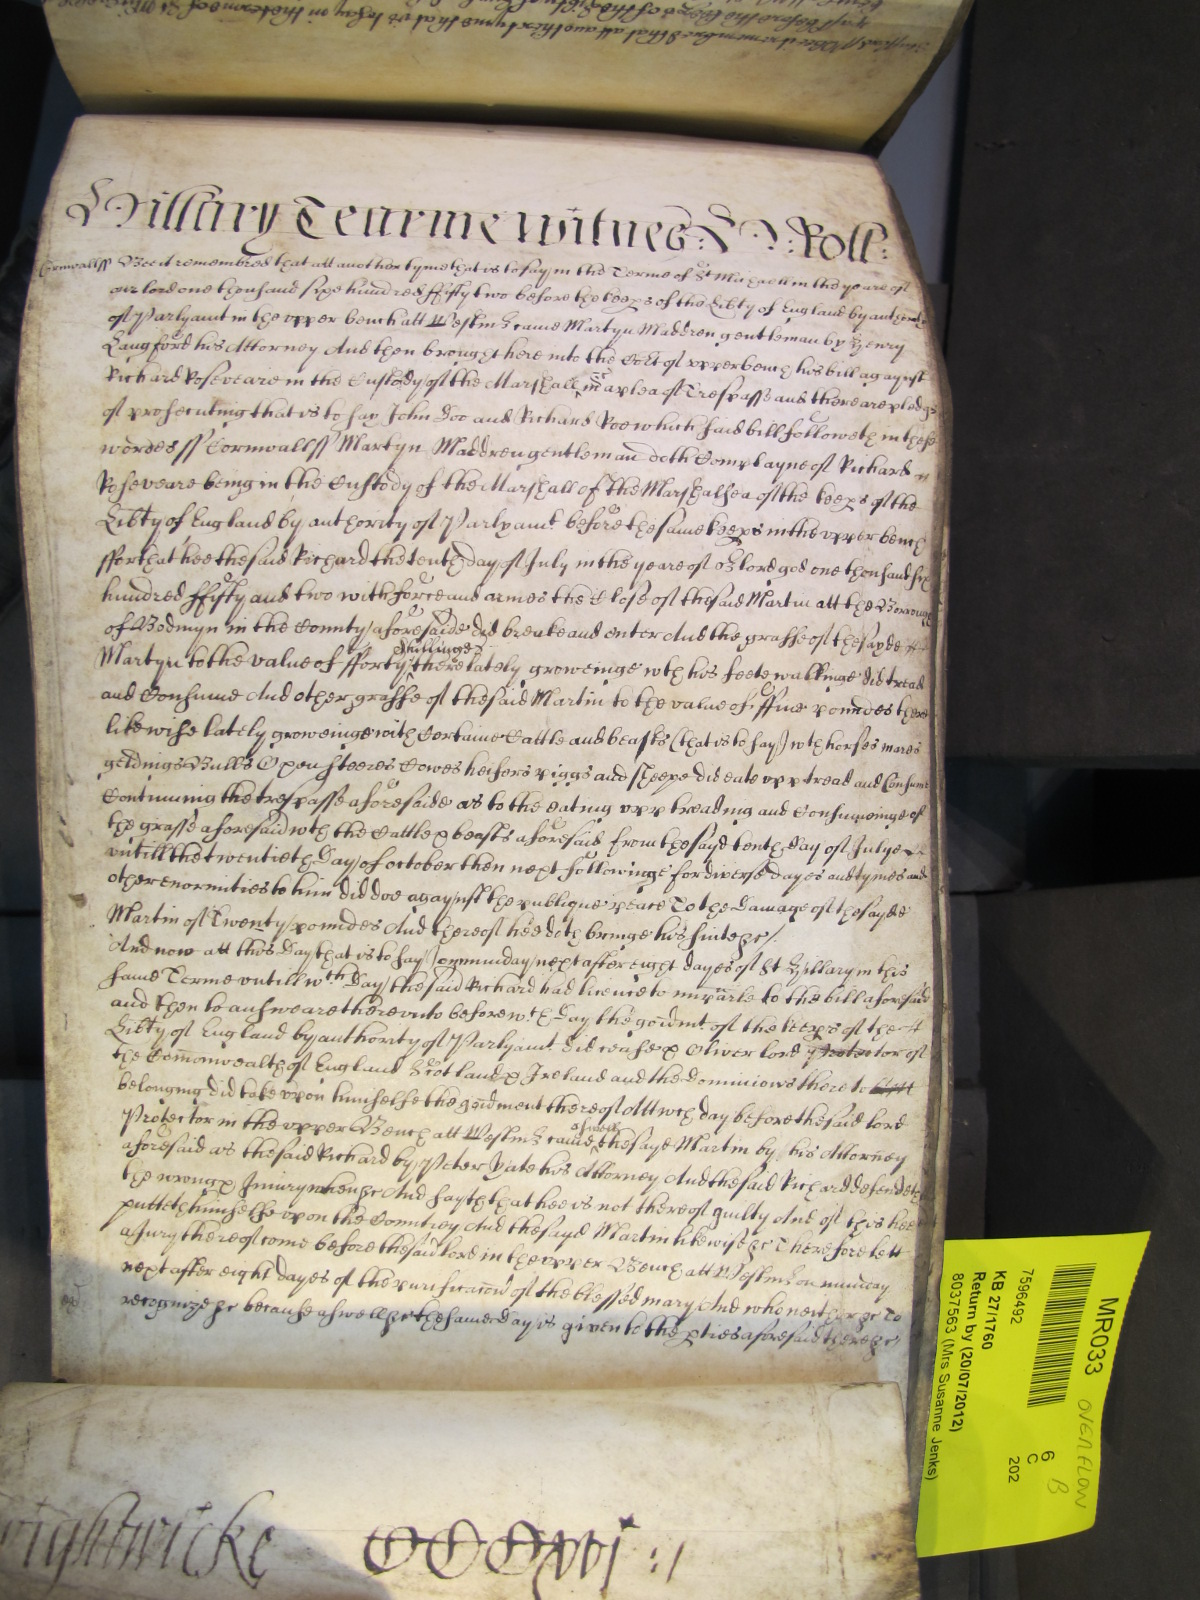 Hillary Tearme witnes: H: Roll:
Cornwall ss Bee it remembred that att another tyme that is to say in the Terme of St Michaell in the yeare of
our lord one thousand sixe hundred ffifty two before the keeps of the Libty of England by authority
of Parlyamt in the upper bench att Westmr came Martyn Maddren gentleman by Henry
Langford his Attorney And then brought here into the Cort of upper bench his bill agaynst
Richard Roseveare in the Custody of the Marshall &c in a plea of Trespasse and there are pledges
of prosecuting that is to say John Doo and Richard Roo which said bill followeth in these
wordes ss Cornwall ss Martyn Maddren gentleman doth Complayne of Richard
Roseveare being in the Custody of the Marshall of the Marshalsea of the keeps of the
Libty of England by authority of Parlyamt before the same keeps in the upper bench
ffor that hee the said Richard the tenth day of July in the yeare of or lord god one thousand six
hundred ffifty and two with force and armes the Close of the said Martin att the Borrough
of Bodmyn in the County aforesaide did breake and enter And the grasse of the sayde
Martyn to the value of fforty shillinges there lately groweinge wth his feete walkinge did tread
and Consume And other grasse of the said Martin to the value of ffive poundes there
likewise lately groweinge with Certaine Cattle and beasts (that is to say) wth horses mares
geldings Bulls Oxen steeres Cowes heifors piggs and sheepe did eate upp tread and Consume
Continuing the trespasse aforesaide as to the eating upp treading and Consumeinge of
the grasse aforesaid wth the Cattle & beasts aforesaid from the sayd tenth day of Julye
untill the twentieth day of october then next followinge for diverse dayes and tymes and
other enormities to him did doe agaynst the publique peace To the Damage of the sayde
Martin of Twenty poundes And thereof hee doth bringe his suite &c /.
And now att this day that is to say on munday next after eight dayes of St Hillary in this
same Terme untill wch day the said Richard had licence to imparle to the bill aforesaid
and then to answeare thereunto before wch day the govmt of the keeps of the
Libty of England by authority of Parlyamt did cease & Oliver lord Protector of
the Comonwealth of England Scotland & Ireland and the Dominions thereto
belonging did take upon himselfe the govment thereof Att wch day before the said lord
Protector in the upper Bench att Westmr came aswell the sayd Martin by his Attorney
aforesaid as the said Richard by Peter Yate his Attorney And the said Richard defendeth
the wrong & Iniury when &c And sayth that hee is not thereof guilty And of this hee
putteth himselfe upon the Countrey And the sayd Martin likewise &c Therefore lett
a Jury thereof come before the said lord in the upper Bench att Westmr on munday
next after eight dayes of the purificacon of the blessed mary And who neither &c To
recognize &c because aswell &c the same day is given to the pties aforesaid there &c
rightwicke
MR033
OVERFLOW
7596492
6
C
202
B
KB 27/1760
Return by (20/07/2012)
8037563 (Mrs Susanne Jenks)